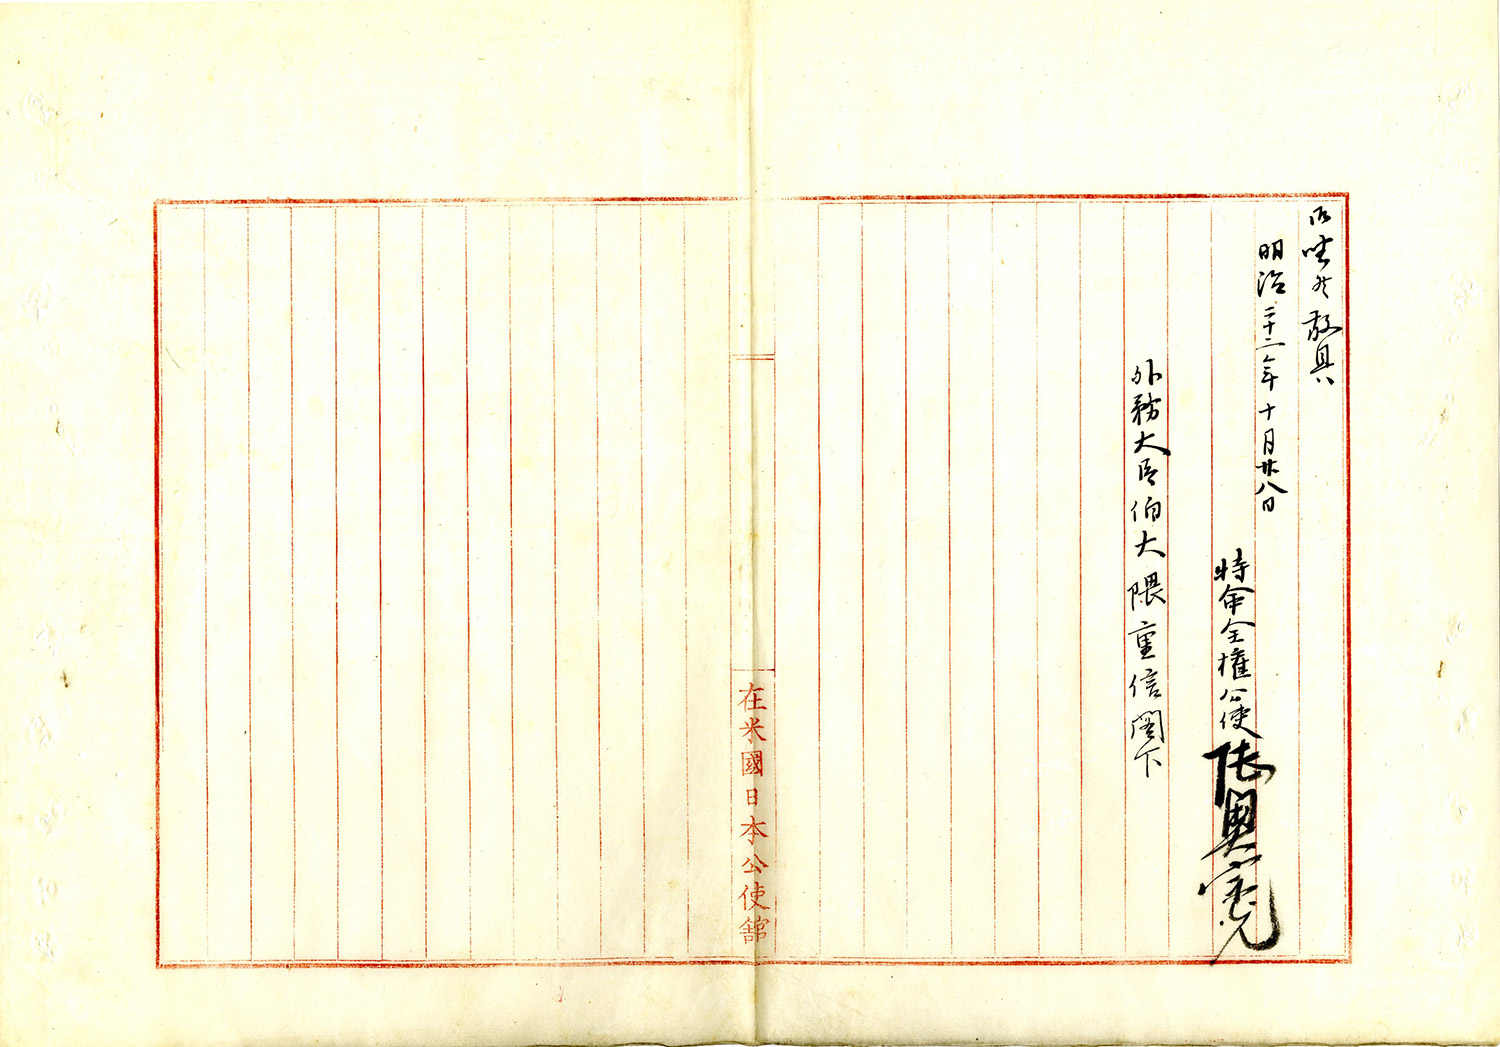 敬具
明治二十二年十月廿八日
特命全權公使陸奧宗光
外務大臣伯大隈重信閣下
在米國日本公使舘